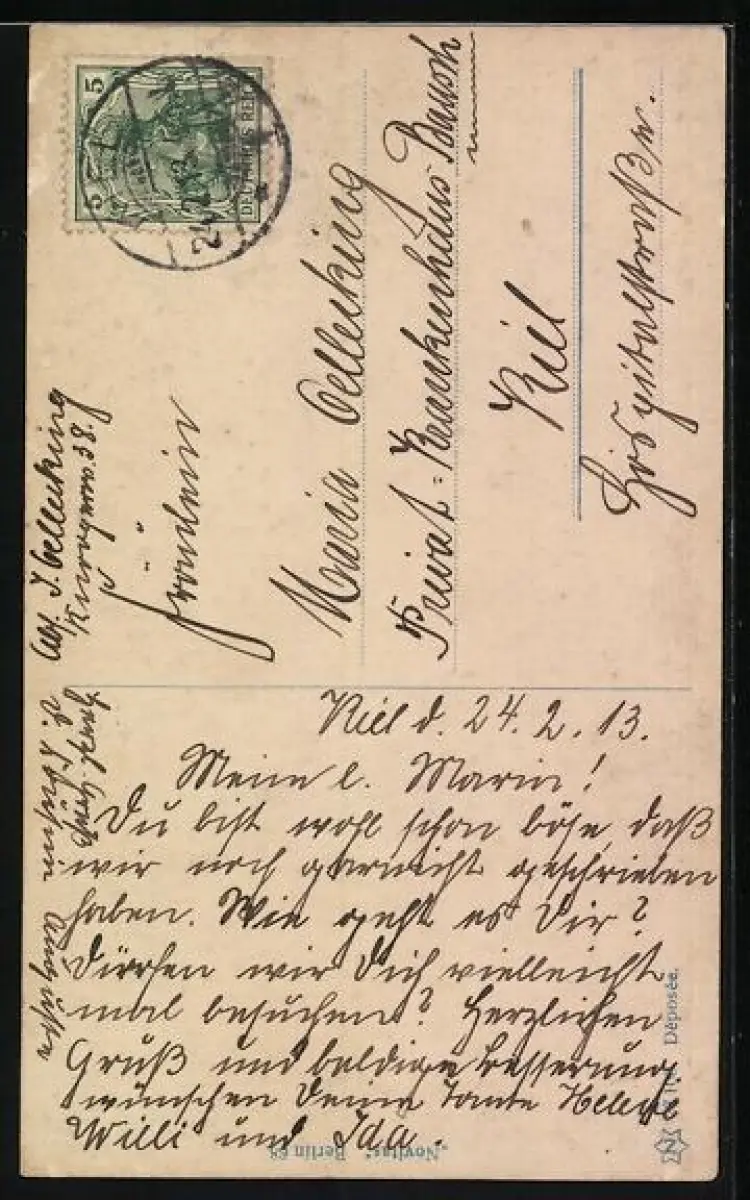 5
5
DEUTSCHES REICH
24.2.13
Abs. I. Oellerking
Knooperw. 38.
Fräulein
Maria Oellerking
Privat-Krankenhaus-
Kiel
Hospitalstraße.
Kiel d. 24.2.13.
Meine l. Maria!
Du bist wohl schon böse, daß
wir noch garnicht geschrieben
haben. Wie geht es Dir?
Dürfen wir Dich vielleicht
mal besuchen? Herzlichen
Gruß und baldige Besserung
wünschen Deine Tante Helene
Willi und Ida.
"Novitas" Berlin 68
Déposée.
N